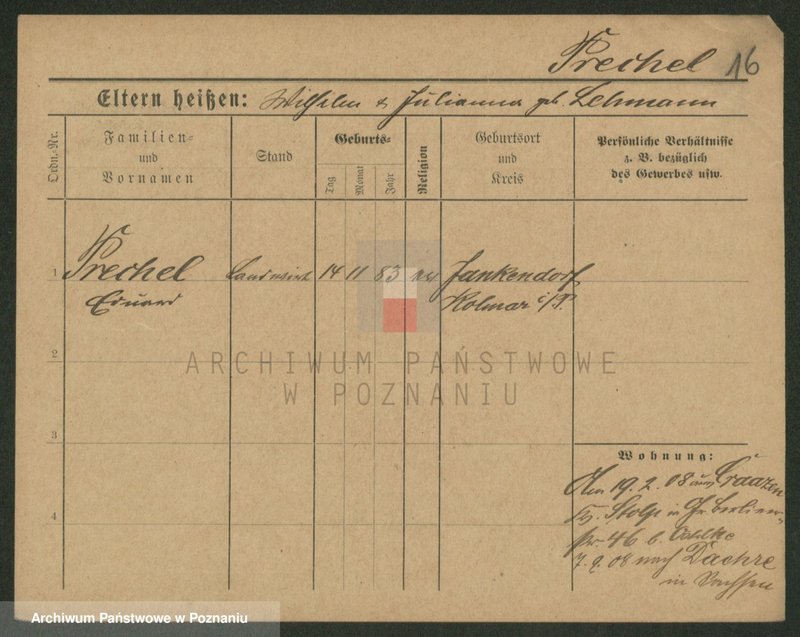 Prechel 16
Eltern heißen: Wilhelm & Julianna geb. Lehmann
Ordn.-Nr.
Familien=
und
Vornamen
Stand
Geburts=
Tag
Monat
Jahr
Religion
Geburtsort
und
Kreis
Persönliche Verhältnisse
z. B. bezüglich
des Gewerbes usw.
1 Prechel Landwirt 14 11 83 Jankendorf
Eduard Kolmar i/P.
2
ARCHIWUM PAŃSTWOWE
W POZNANIU
3
Wohnung:
Am 19.2.08 aus
Stolp in Gr. Berliner=
str. 46 b.
7.9.08 nach
in Sachsen
4
Archiwum Państwowe w Poznaniu